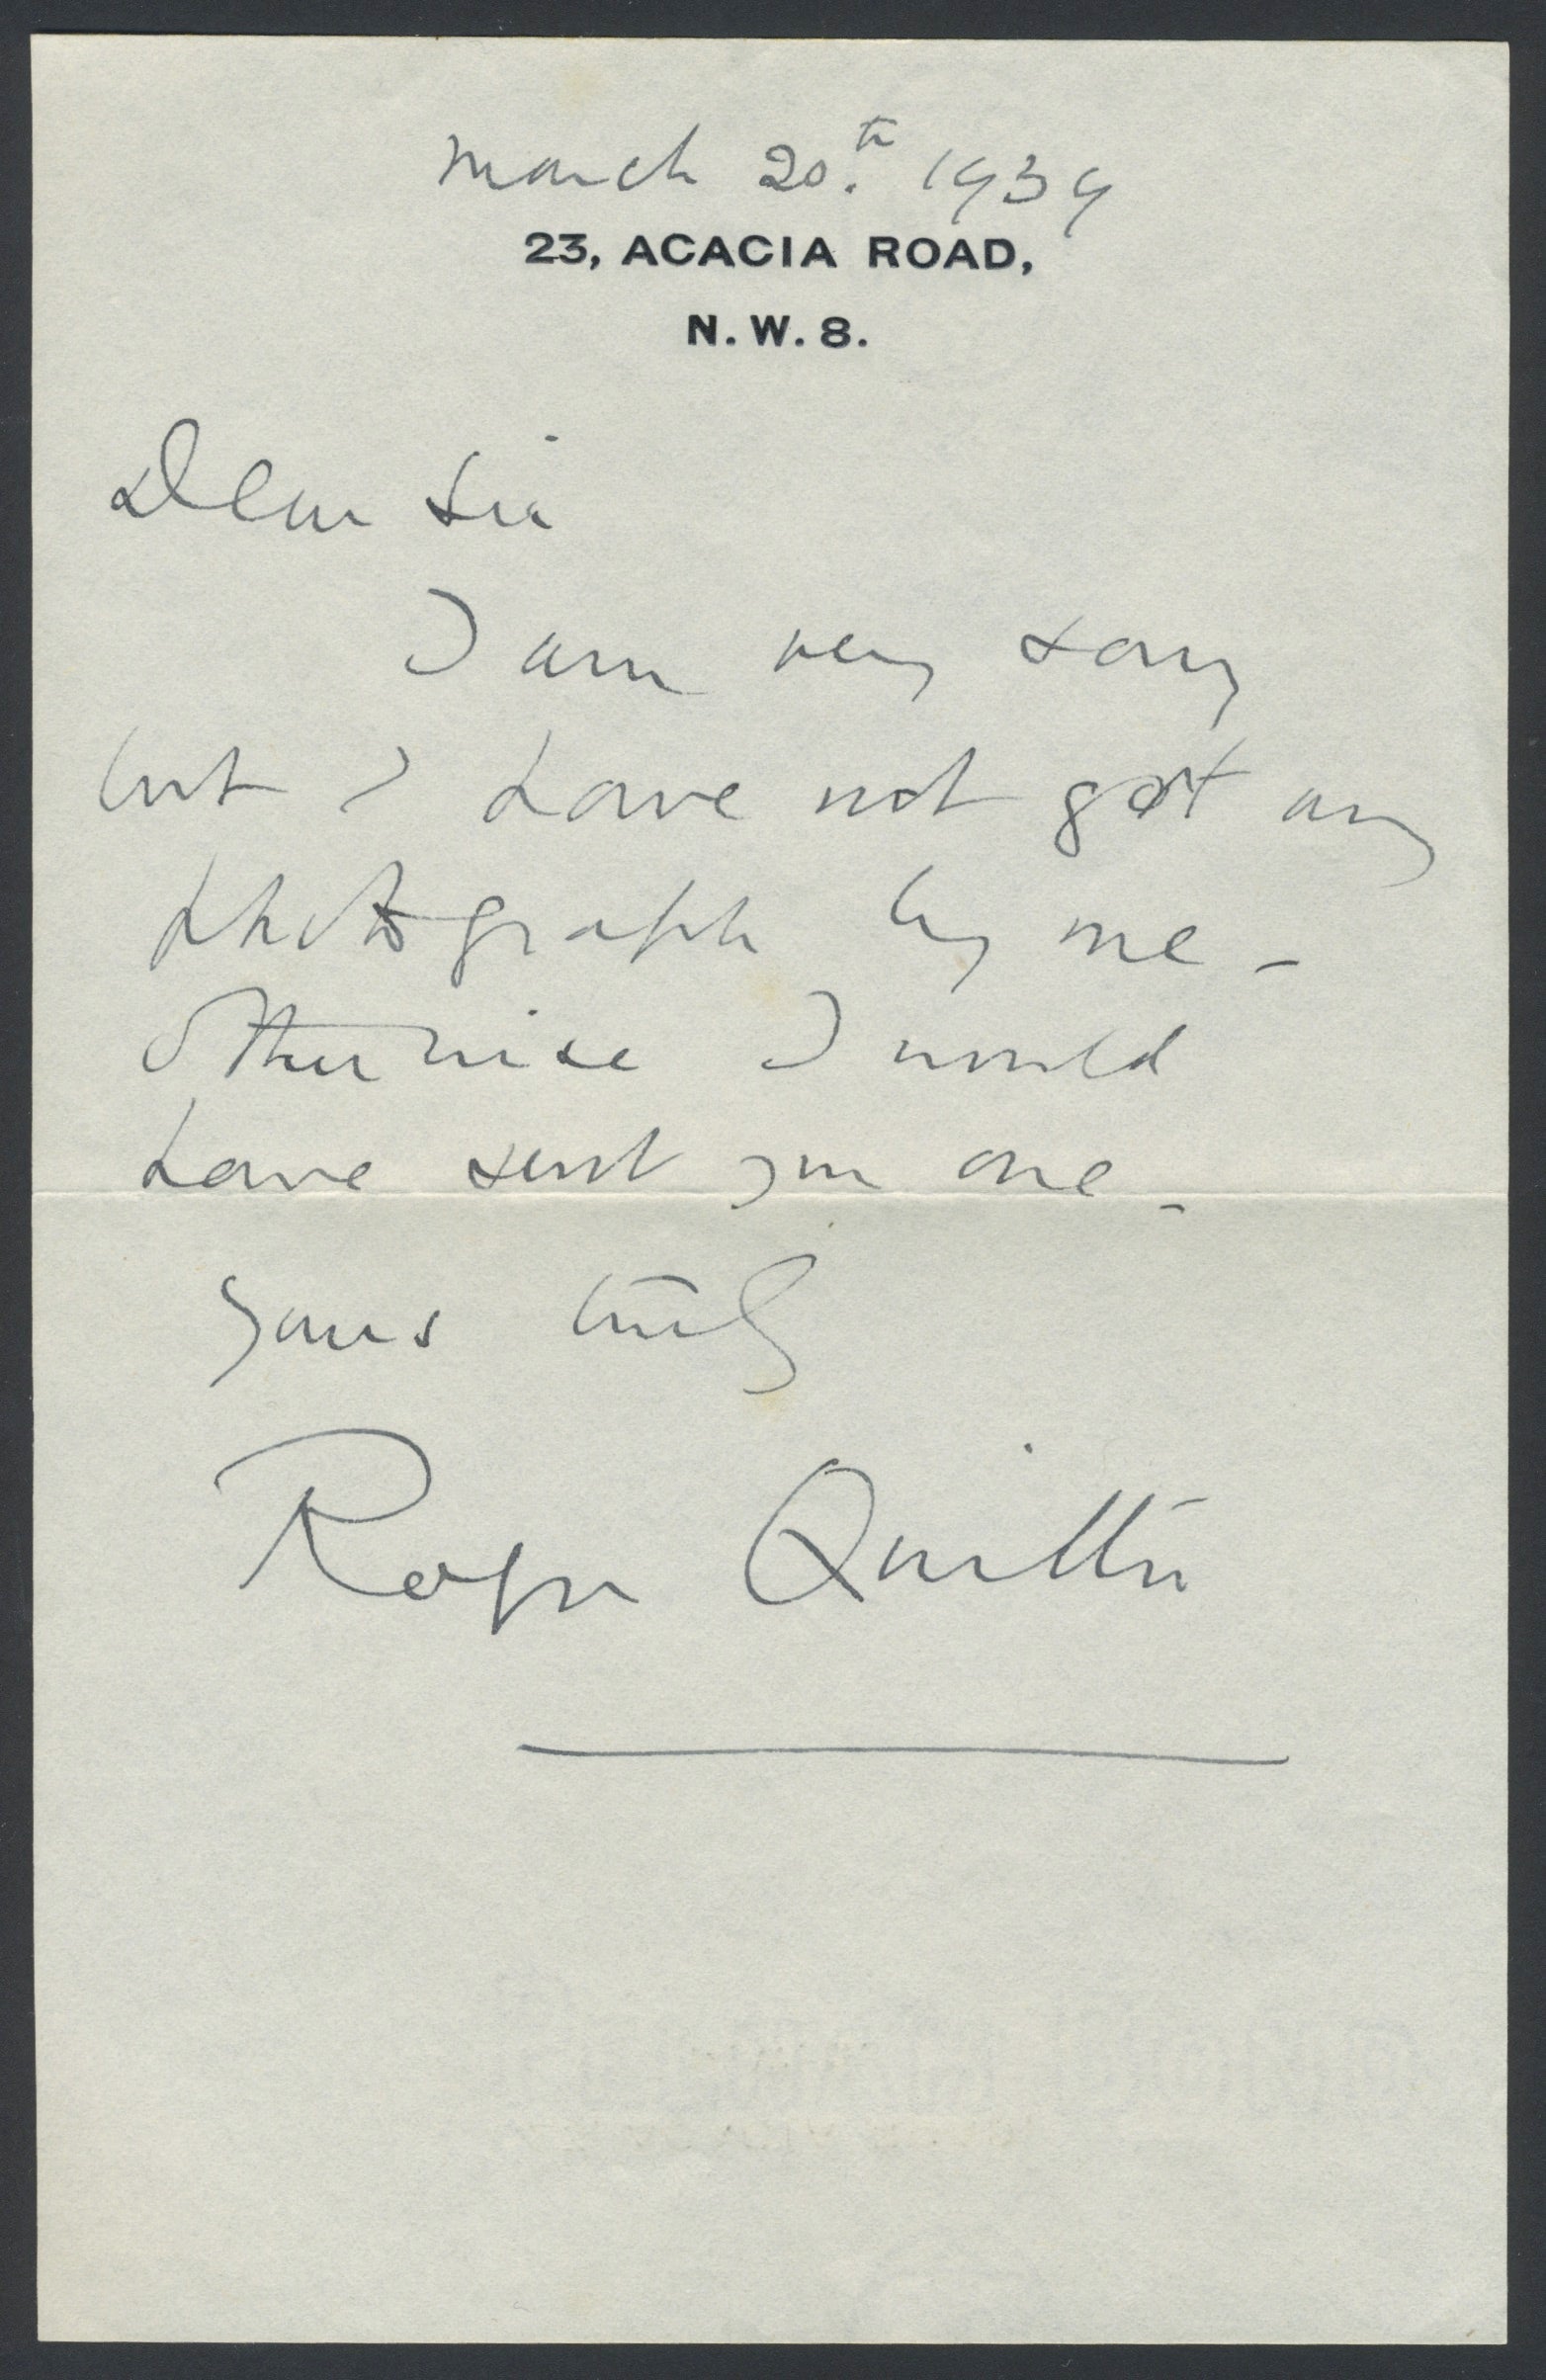 March 20th. 1939
23, ACACIA ROAD,
N. W. 8.
Dear Sir
I am very sorry
but I have not got any
photograph by me -
otherwise I would
have sent you one -
yours truly
Roger Quilter